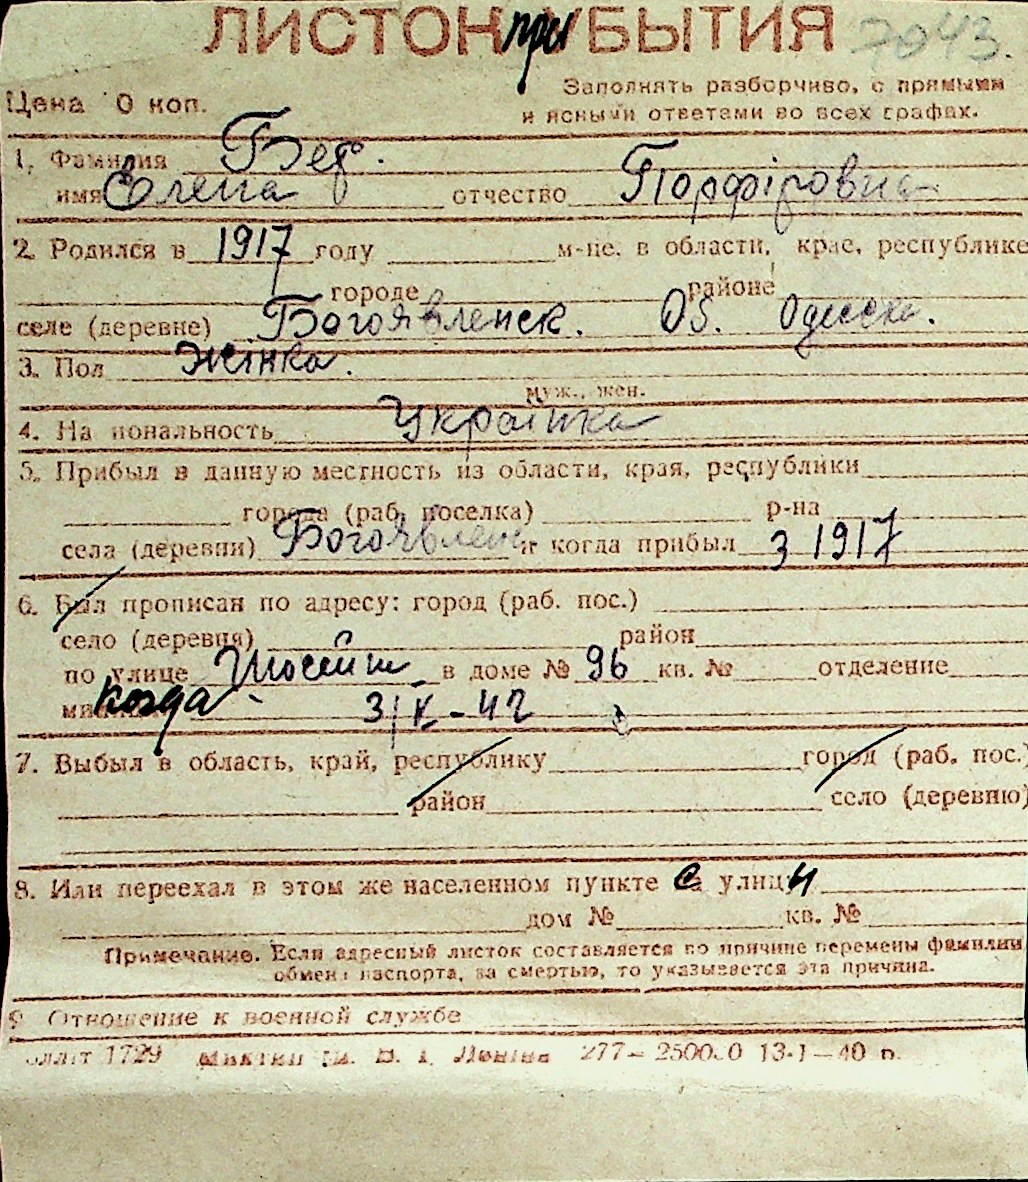 ЛИСТОК при УБЫТИЯ 7043.
Цена 0 коп.
Заполнять разборчиво, с прямыми
и ясными ответами во всех графах.
1. Фамилия Бер.
имя Олена отчество Порфіровна
2. Родился в 1917 году м-це. в области, крае, республике
городе районе
селе (деревне) Богоявленск. Об. Одеска.
3. Пол жінка.
муж., жен.
4. На иональность Українка
5. Прибыл в данную местность из области, края, республики
города (раб. поселка) р-на
села (деревни) Богоявленс и когда прибыл з 1917
6. Был прописан по адресу: город (раб. пос.)
село (деревня) район
по улице в доме № 96 кв. № отделение
когда 3/X-42
7. Выбыл в область, край, республику город (раб. пос.)
район село (деревню)
8. Или переехал в этом же населенном пункте с улицы
дом № кв. №
Примечание. Если адресный листок составляется по причине перемены фамилии
обмен паспорта, за смертью, то указывается эта причина.
9 Отношение к военной службе
1729 277— 13-I—40 р.